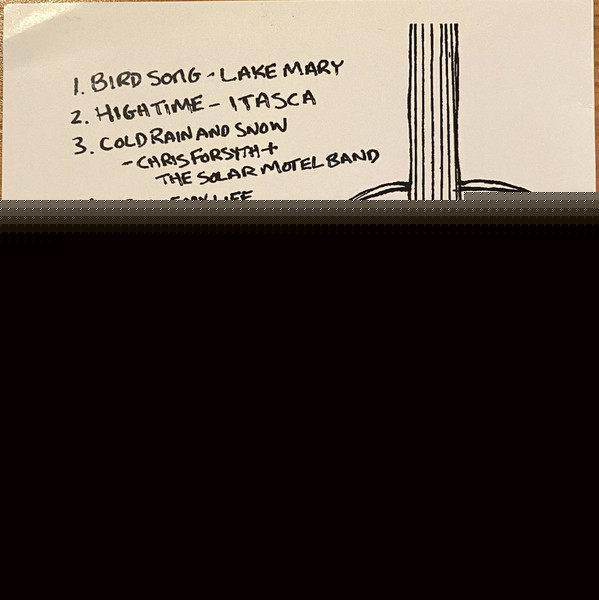 1. BIRD SONG - LAKE MARY
2. HIGH TIME - ITASCA
3. COLD RAIN AND SNOW
- CHRIS FORSYTH +
THE SOLAR MOTEL BAND
LIFE